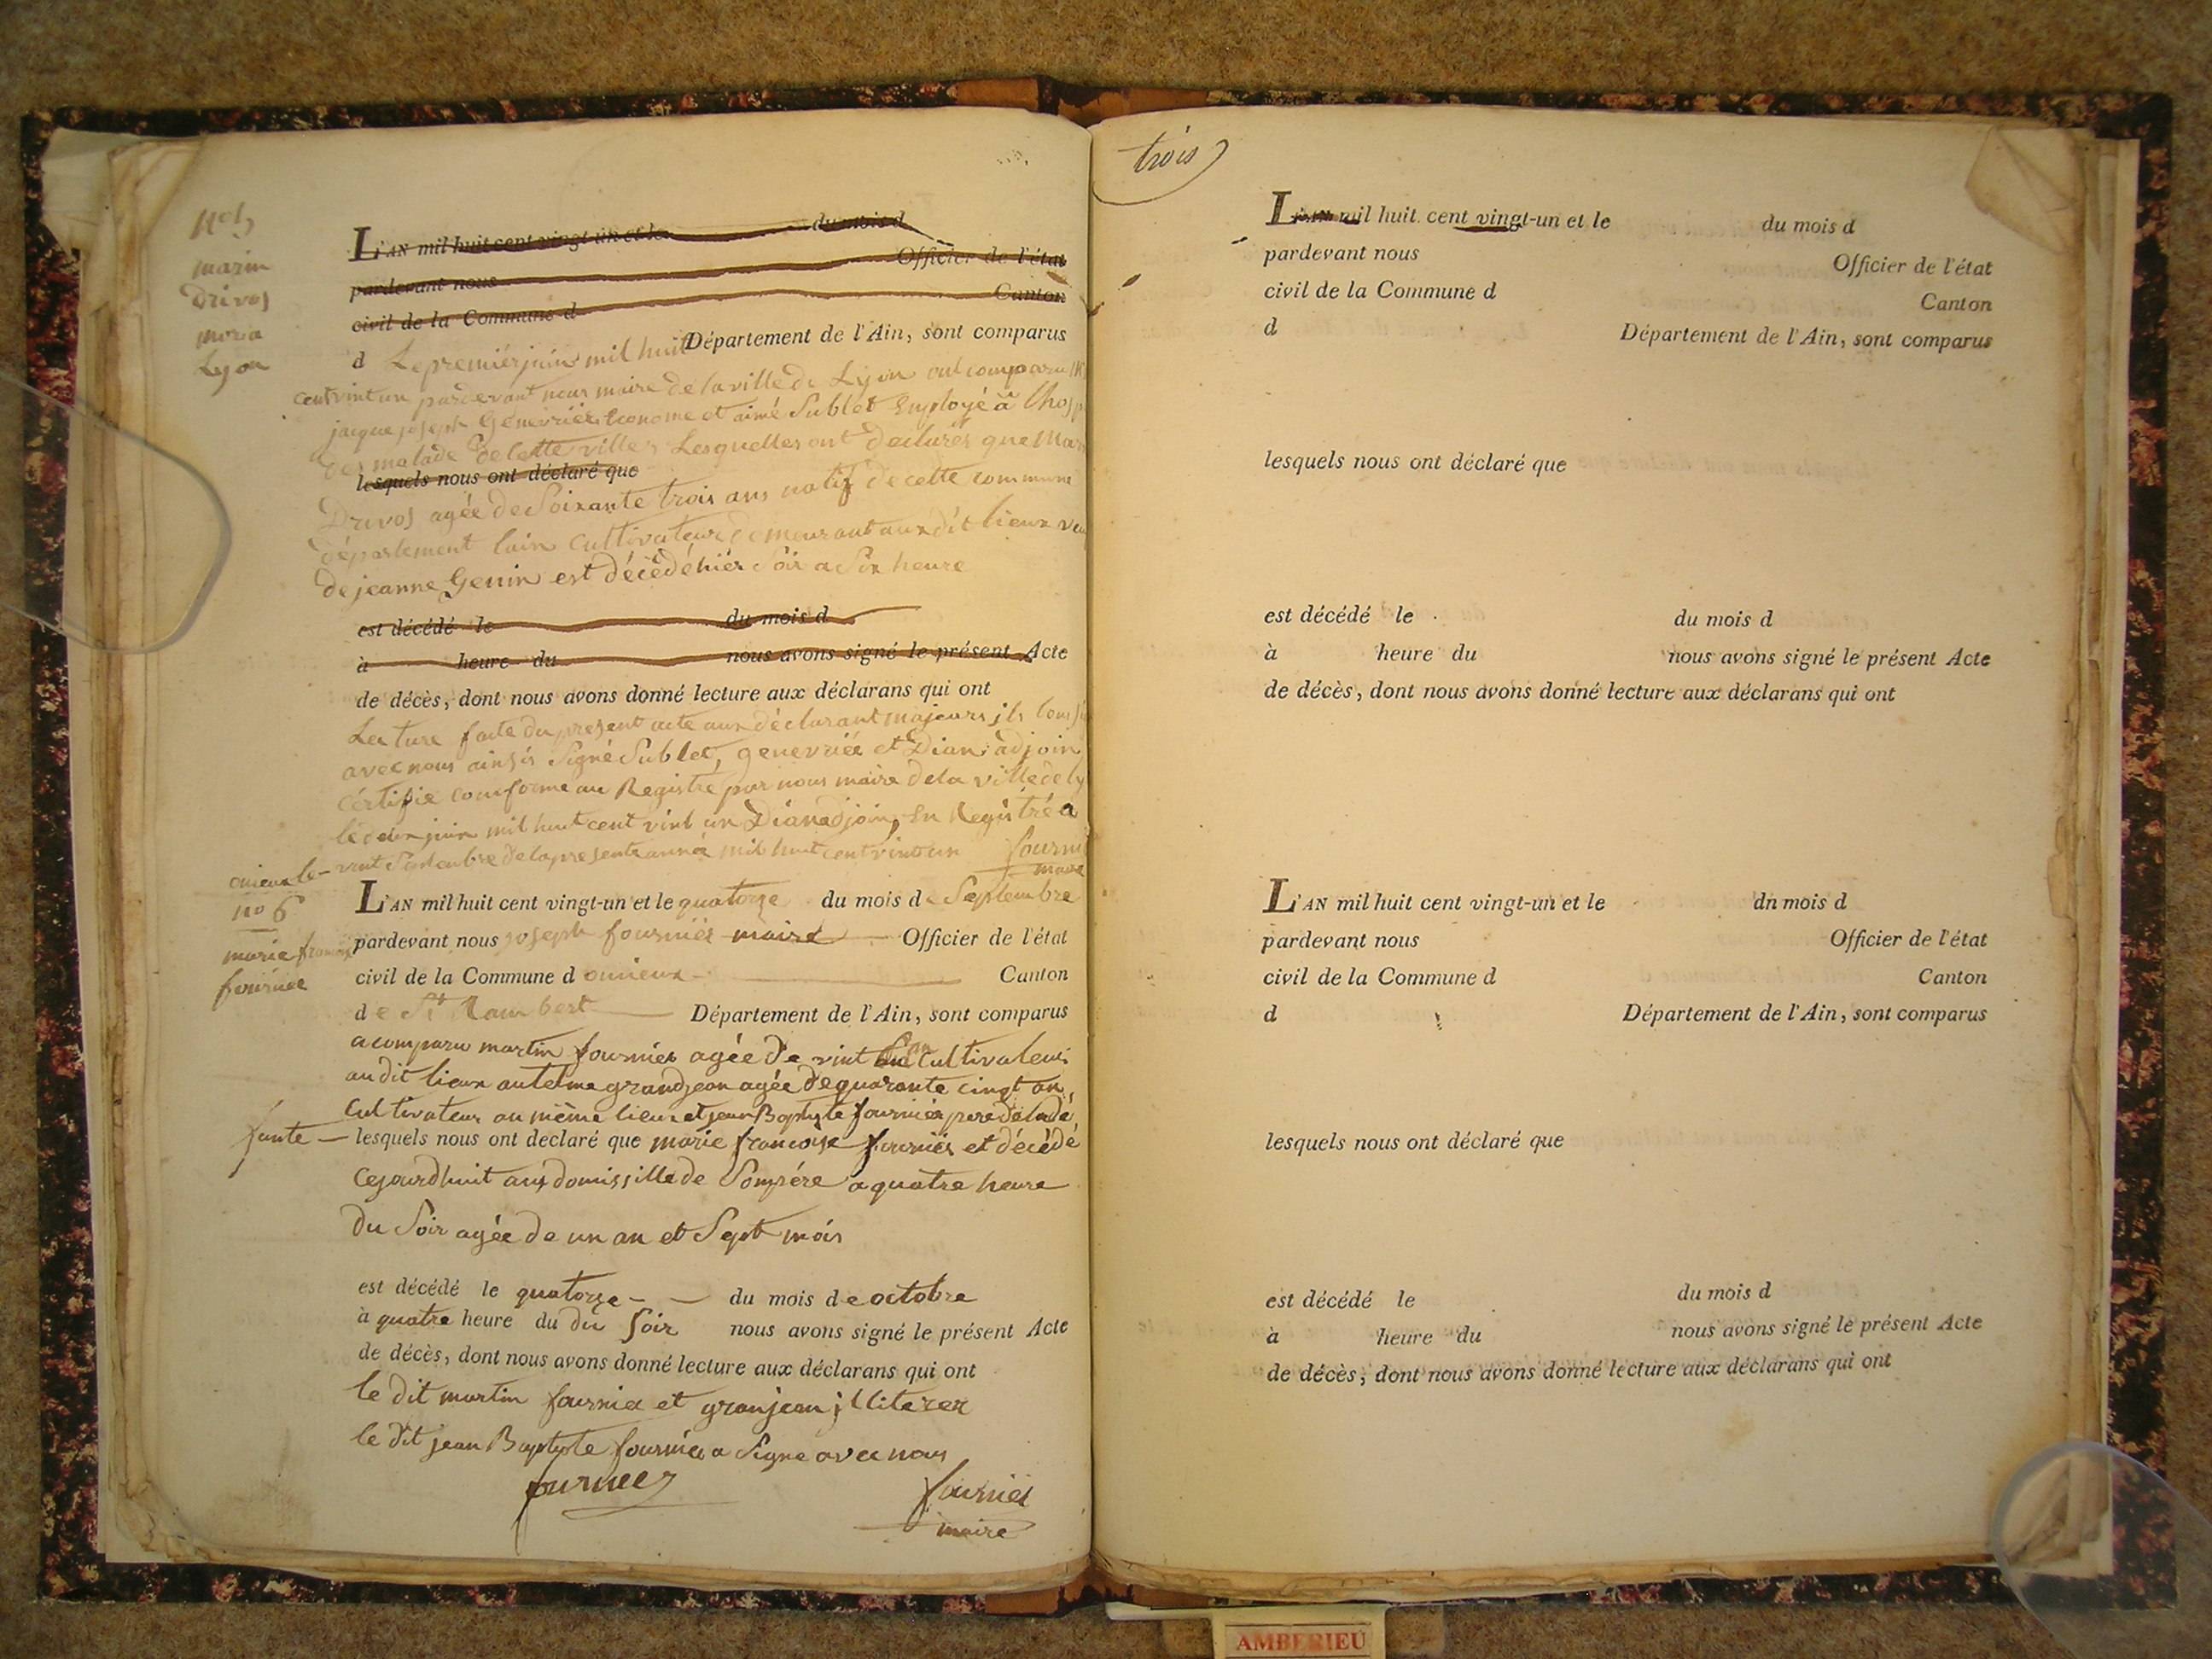 No 5
marin
Drivos
mora
Lyon
L'AN mil huit cent vingt-un et le du mois d
pardevant nous Officier de l'état
civil de la Commune d Canton
d Le premièr juin mil huit Département de l'Ain, sont comparus
cent vint un pardevant nous maire de la ville de Lyon ont comparu
jacque joseph Genevrièr Econome et aimé Sublet Employé à
des malade de Cette ville Lesquelles ont déclarés que
lesquels nous ont déclaré que
Drivos agée de Soixante trois ans natif de cette commune
département lain cultivateur demeurant aux dit lieux
de jeanne Genin est décèdé hièr Soir a Six heure
est décédé le du mois d
à heure du nous avons signé le présent Acte
de décès, dont nous avons donné lecture aux déclarans qui ont
Lecture faite du present acte aux déclarant majeurs ils
avec nous ainsis Signé Sublet, genevriée et Dian adjoin
cértifie conforme au Registre par nous maire dela ville de
le deux juin mil huit cent vint un Dian adjoin, En Registré a
onieux le vint Septembre de la presente année mil huit cent vint un
maire
no 6
marie
fournier
L'AN mil huit cent vingt-un et le quatorze du mois de Septembre
pardevant nous joseph fournièr maire Officier de l'état
civil de la Commune d onieux Canton
de St Rambert Département de l'Ain, sont comparus
a comparu martin fournier agée de vint cultivateur
au dit lieux antelme grandjean agée de quarante cinqt an
cultivateur au même lieux et jean Baptyste fournièr pere de la dé
funte lesquels nous ont declaré que marie francoise fournièr et décédé
cejourdhuit aux domissille de Sompére a quatre heure
du Soir agée de un an et Sept mois
est décédé le quatorze du mois de octobre
à quatre heure du du Soir nous avons signé le présent Acte
de décès, dont nous avons donné lecture aux déclarans qui ont
le dit martin fournier et granjean illiterer
le dit jean Baptyste fournier a Signe avec nous
fournier
maire
trois
L'AN mil huit cent vingt-un et le du mois d
pardevant nous Officier de l'état
civil de la Commune d Canton
d Département de l'Ain, sont comparus
lesquels nous ont déclaré que
est décédé le du mois d
à heure du nous avons signé le présent Acte
de décès, dont nous avons donné lecture aux déclarans qui ont
L'AN mil huit cent vingt-un et le dn mois d
pardevant nous Officier de l'état
civil de la Commune d Canton
d Département de l'Ain, sont comparus
lesquels nous ont déclaré que
est décédé le du mois d
à heure du nous avons signé le présent Acte
de décès, dont nous avons donné lecture aux déclarans qui ont
AMBERIEU